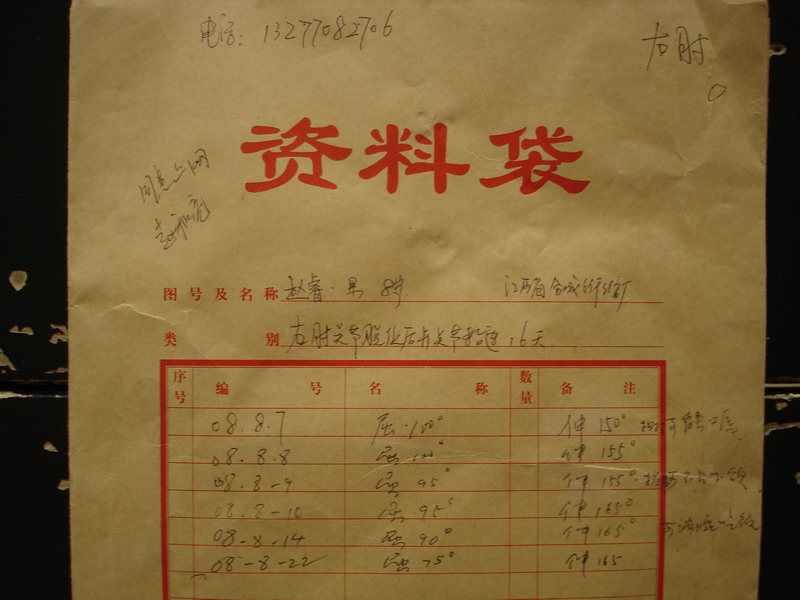 电话: 13277082706
右肘
资料袋
图号及名称 赵睿·男 8岁 江西省合成纤维厂
类别 右肘关节脱位后 关节 16天
序号 编号 名称 数量 备注
08.8.7 屈·100° 伸 150°
08.8.8 屈 100° 伸 155°
08.8-9 屈 95° 伸 155°
08.8-10 屈 95° 伸 165°
08-8-14 屈 90° 伸 165°
08-8-22 屈 75° 伸 165